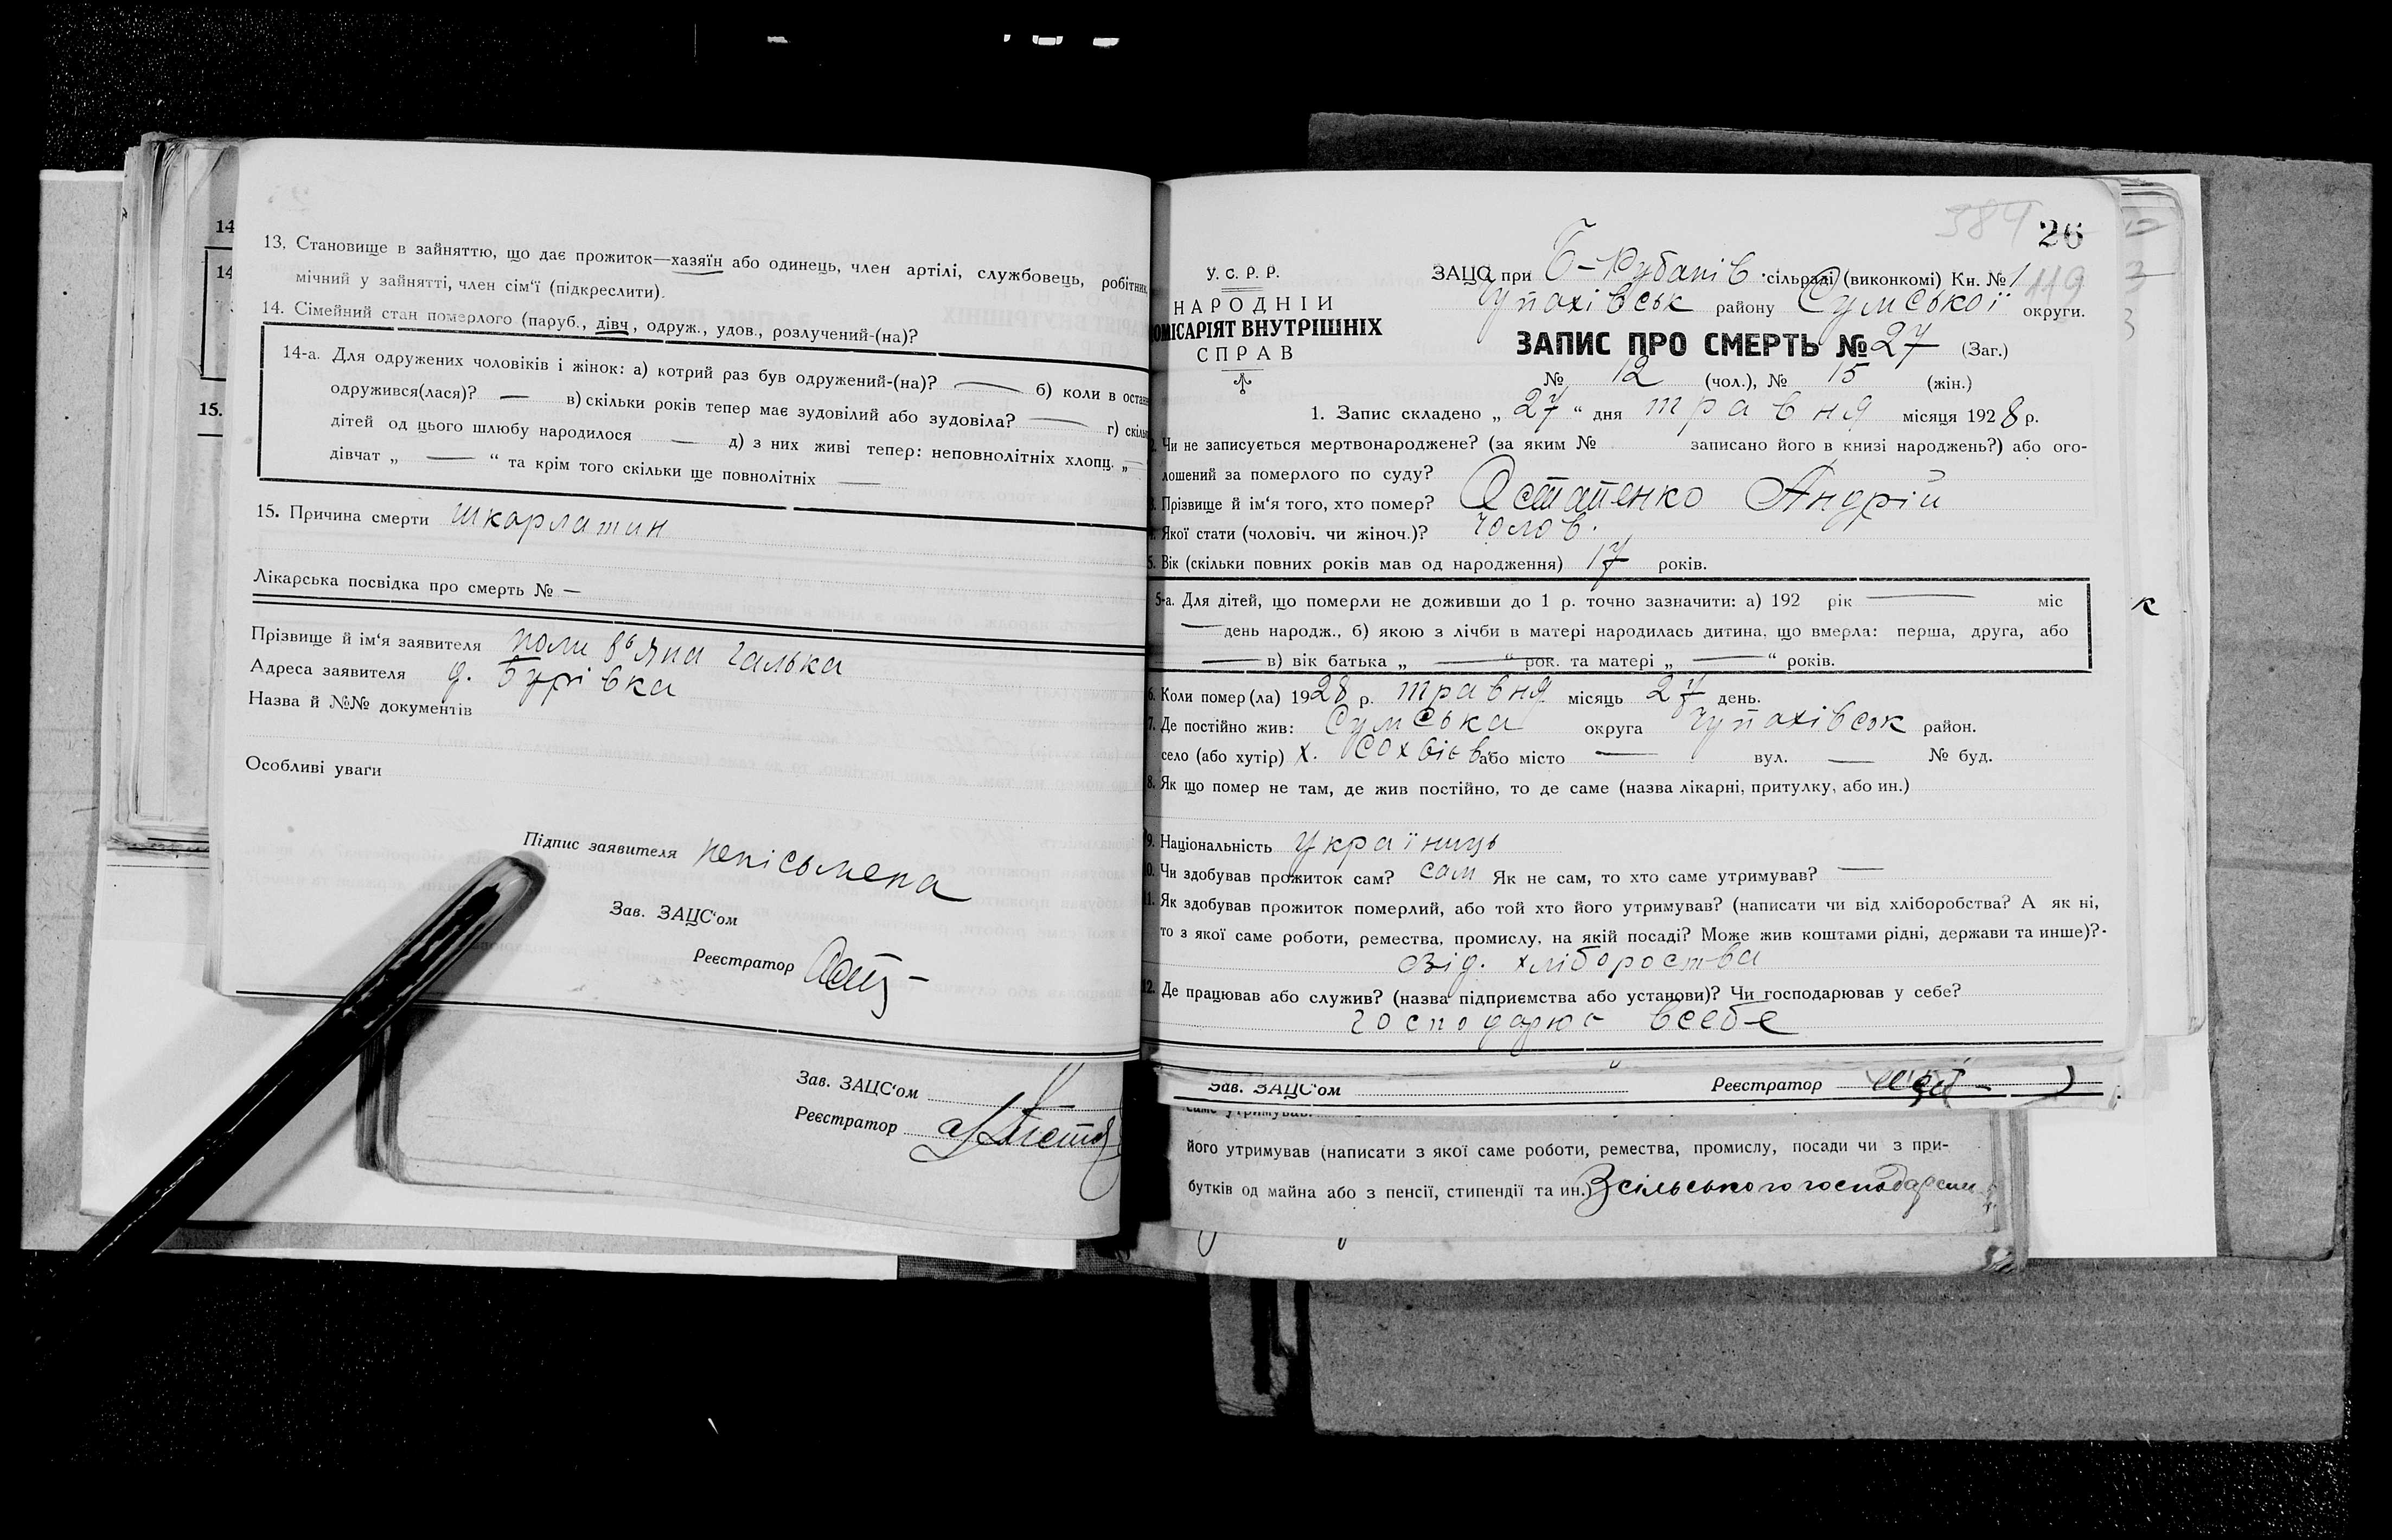 14
14
15.
13. Становище в зайняттю, що дає прожиток—хазяїн або одинець, член артілі, службовець, робітник,
мічний у зайнятті, член сім'ї (підкреслити).
14. Сімейний стан померлого (паруб., дівч, одруж., удов., розлучений-(на)?
14-а. Для одружених чоловіків і жінок: а) котрий раз був одружений-(на)? — б) коли в остан
одружився(лася)? — в) скільки років тепер має зудовілий або зудовіла? — г) скіль
дітей од цього шлюбу народилося — д) з них живі тепер: неповнолітніх хлопц. „—
дівчат „ — “ та крім того скільки ще повнолітніх —
15. Причина смерти шкарлатин
Лікарська посвідка про смерть № —
Прізвище й ім'я заявителя галька
Адреса заявителя Бурівка
Назва й №№ документів
Особливі уваги
Підпис заявителя непісьмена
Зав. ЗАЦС'ом
Реєстратор
Зав. ЗАЦС'ом
Реєстратор
384
26
119
У. С. Р. Р.
НАРОДНІЙ
КОМІСАРІЯТ ВНУТРІШНІХ
СПРАВ
ЗАЦС при Б-Рубанів сільраді (виконкомі) Кн. № 1
Чупахівськ району Сумської округи.
ЗАПИС ПРО СМЕРТЬ № 27 (Заг.)
№ 12 (чол.), № 15 (жін.)
1. Запис складено „ 27 “ дня травня місяця 1928 р.
2. Чи не записується мертвонароджене? (за яким № записано його в книзі народжень?) або ого-
лошений за померлого по суду?
3. Прізвище й ім'я того, хто помер? Остапенко Андрій
4. Якої стати (чоловіч. чи жіноч.)? чолов.
5. Вік (скільки повних років мав од народження) 17 років.
5-а. Для дітей, що померли не доживши до 1 р. точно зазначити: а) 192 рік — міс
— день народж., б) якою з лічби в матері народилась дитина, що вмерла: перша, друга, або
— в) вік батька „ — “ рок. та матері „ — “ років.
6. Коли помер(ла) 1928 р. травня місяць 27 день.
7. Де постійно жив: Сумська округа Чупахівськ район.
село (або хутір) х. або місто — вул. — № буд.
8. Як що помер не там, де жив постійно, то де саме (назва лікарні, притулку, або ин.)
9. Національність українць
10. Чи здобував прожиток сам? сам Як не сам, то хто саме утримував? —
11. Як здобував прожиток померлий, або той хто його утримував? (написати чи від хліборобства? А як ні,
то з якої саме роботи, ремества, промислу, на якій посаді? Може жив коштами рідні, держави та инше)?
від. хлібороства
12. Де працював або служив? (назва підприємства або установи)? Чи господарював у себе?
господарює всебе
Зав. ЗАЦС'ом Реєстратор
саме утримував.
його утримував (написати з якої саме роботи, ремества, промислу, посади чи з при-
бутків од майна або з пенсії, стипендії та ин.) З сільського